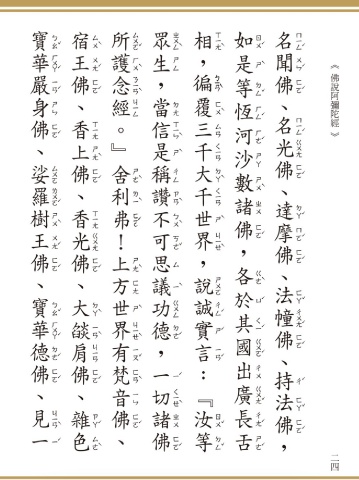 《佛說阿彌陀經》
名聞佛、名光佛、達摩佛、法幢佛、持法佛，
如是等恆河沙數諸佛，各於其國出廣長舌
相，徧覆三千大千世界，說誠實言：『汝等
眾生，當信是稱讚不可思議功德，一切諸佛
所護念經。』舍利弗！上方世界有梵音佛、
宿王佛、香上佛、香光佛、大燄肩佛、雜色
寶華嚴身佛、娑羅樹王佛、寶華德佛、見一
二四